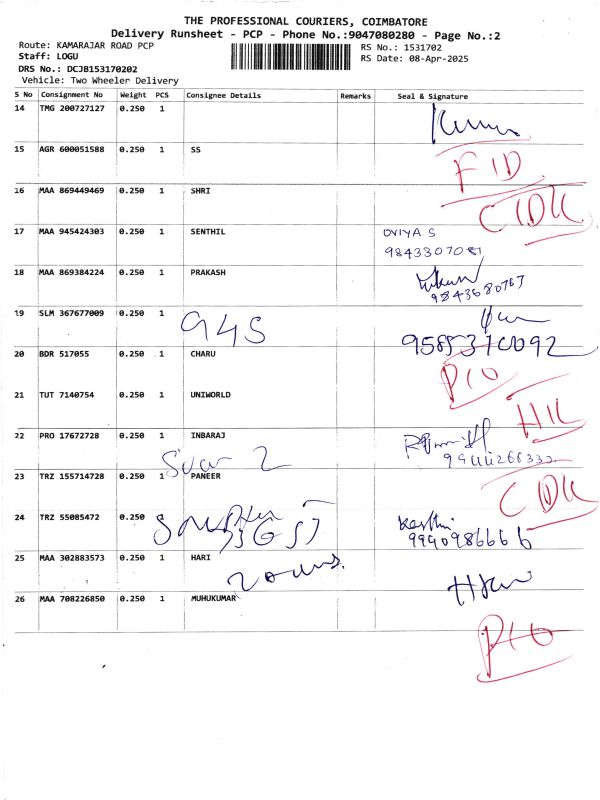 THE PROFESSIONAL COURIERS, COIMBATORE
Delivery Runsheet - PCP - Phone No.:9047080280 - Page No.:2
Route: KAMARAJAR ROAD PCP
Staff: LOGU
DRS No.: DCJB153170202
Vehicle: Two Wheeler Delivery
RS No.: 1531702
RS Date: 08-Apr-2025
S No Consignment No Weight PCS Consignee Details Remarks Seal & Signature
14 TMG 200727127 0.250 1
15 AGR 600051588 0.250 1 SS
FID
16 MAA 869449469 0.250 1 SHRI
CIDL
17 MAA 945424303 0.250 1 SENTHIL OVIYA S
9843307081
18 MAA 869384224 0.250 1 PRAKASH
9843680767
19 SLM 367677009 0.250 1 945
9585370092
20 BDR 517055 0.250 1 CHARU
PIO
21 TUT 7140754 0.250 1 UNIWORLD
HIL
22 PRO 17672728 0.250 1 INBARAJ
23 TRZ 155714728 0.250 1 PANEER
24 TRZ 55085472 0.250 1
9990986666
25 MAA 302883573 0.250 1 HARI
26 MAA 708226850 0.250 1 MUHUKUMAR
PIO